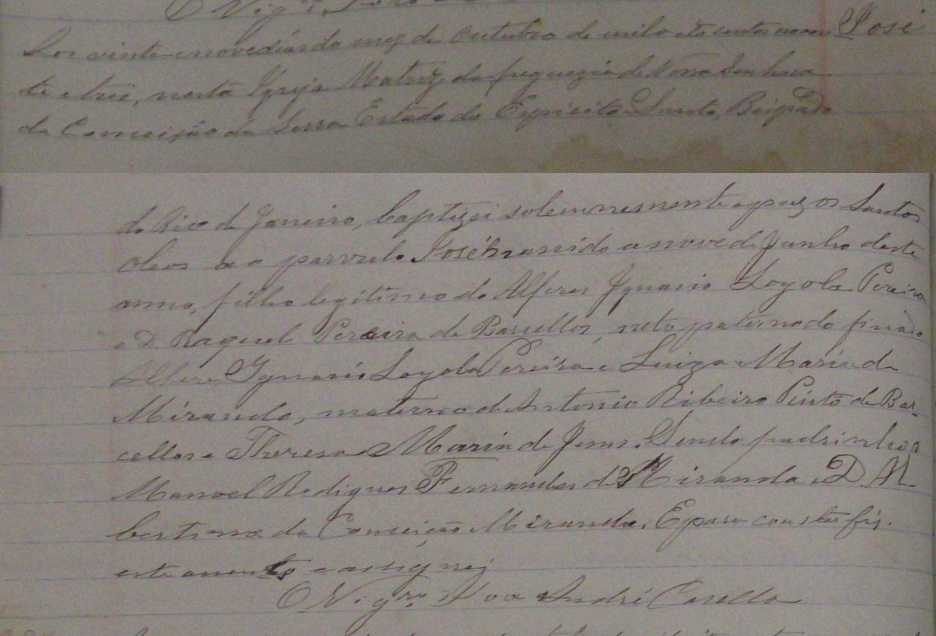 O Vigr.
José
Aos vinte e nove dias do mez de Outubro de mil oito centos noven
ta e tres, nesta Igreja Matriz da freguezia de Nossa Senhora
da Conceição da Serra Estado do Espirito Santo, Bispado
do Rio de Janeiro, baptizei solemnesmente e puz os Santos
Oleos a o parvulo José nascido a nove de Junho deste
anno, filho legitimo do Alferes Ignacio Loyola Pereira
e D. Raquel Pereira de Barcellos, neto paterno do finado
Alferes Ignacio Loyola Pereira e Luiza Maria de
Miranda, materno de Antonio Ribeiro Pinto de Bar-
cellos e Theresa Maria de Jesus. Sendo padrinhos
Manoel Rodigues Fernandes de Miranda e D. Al-
bertina da Conceição Miranda. E para constar fiz
este assento e assignei
O Vigro. André Casella